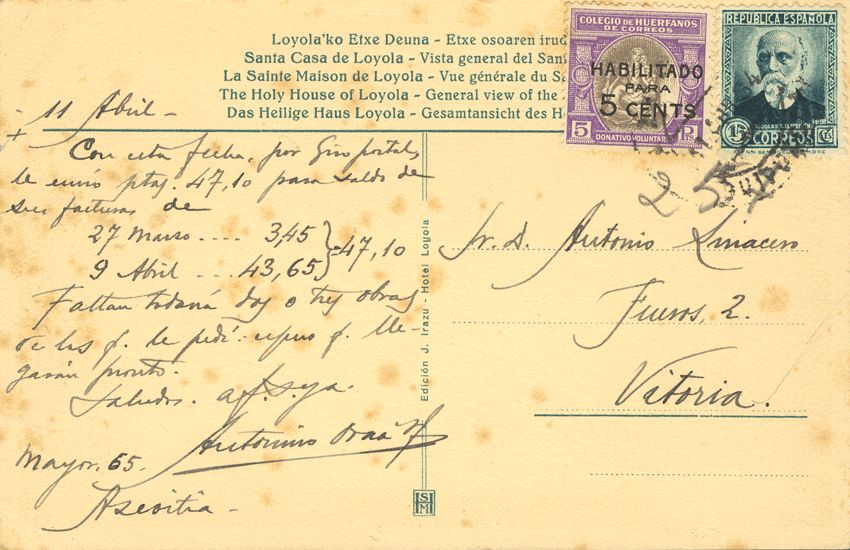 Loyola'ko Etxe Deuna - Etxe osoaren irud
Santa Casa de Loyola - Vista general del San
La Sainte Maison de Loyola - Vue générale du Sa
The Holy House of Loyola - General view of the
Das Heilige Haus Loyola - Gesamtansicht des H
COLEGIO DE HUERFANOS
DE CORREOS
HABILITADO
PARA
5 CENTS
5 DONATIVO VOLUNTARIO Pts
REPUBLICA ESPAÑOLA
15 CORREOS Cts
25
11 Abril -
Con esta fecha, por Giro postal,
le envio ptas. 47,10 para saldo de
sus facturas de
27 Marzo .... 3,45
9 Abril ... 43,65 } = 47,10
Faltan todavía dos o tres obras
de las q. le pedí. espero q. lle-
garán pronto.
Saludos.
Antonino Oraá
Mayor, 65.
Azcoitia -
Edición J. Irazu - Hotel Loyola
Sr. D. Antonio Linacero
Fueros, 2.
Vitoria.